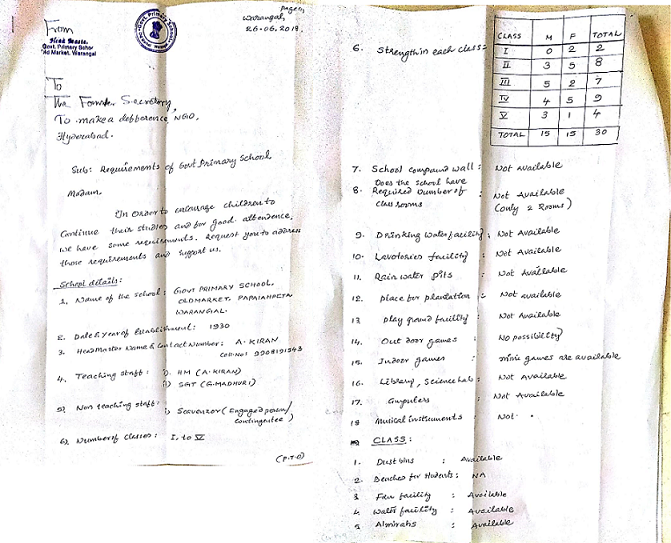 From
Head Master
Govt. Primary School
Old Market, Warangal
Page 1
Warangal,
26-06-2019.
To
The Founder Secretary,
To make a defference, NGO,
Hyderabad.
Sub: Requirements of Govt Primary School
Madam,
In order to encourage children to
continue their studies and for good attendence,
we have some requirements. Request you to address
those requirements and support us.
School details:
1. Name of the school: GOVT PRIMARY SCHOOL,
OLDMARKET, PAPAIAHPETA
WARANGAL.
2. Date & Year of Establishment: 1930
3. Headmaster Name & Contact Number: A. KIRAN
Cell No: 9908191543
4. Teaching staff: i) HM (A. KIRAN)
ii) SGT (G. MADHURI)
5) Non teaching staff: i) Scavenzor (Engaged
contingentee)
6) Number of classes: I. to V
(P.T.O)
6. Strength in each class:
CLASS M F TOTAL
I 0 2 2
II 3 5 8
III 5 2 7
IV 4 5 9
V 3 1 4
TOTAL 15 15 30
7. School compound wall: Not available
Does the school have
8. Required number of : Not Available
classrooms (only 2 Rooms)
9. Drinking water facility: Not Available
10. Lavotories facility: Not Available
11. Rain water pits : Not Available
12. Place for plantation : Not available
13. Play ground facility: Not Available
14. Out door games : No possibility
15. Indoor games : mini games are available
16. Library, Science lab: Not Available
17. : Not Available
18 Musical instruments : Not
CLASS:
1. Dust bins : Available
2. Benches for students: NA
3 Fan facility : Available
4. Water facility : Available
5 Almirahs : Available